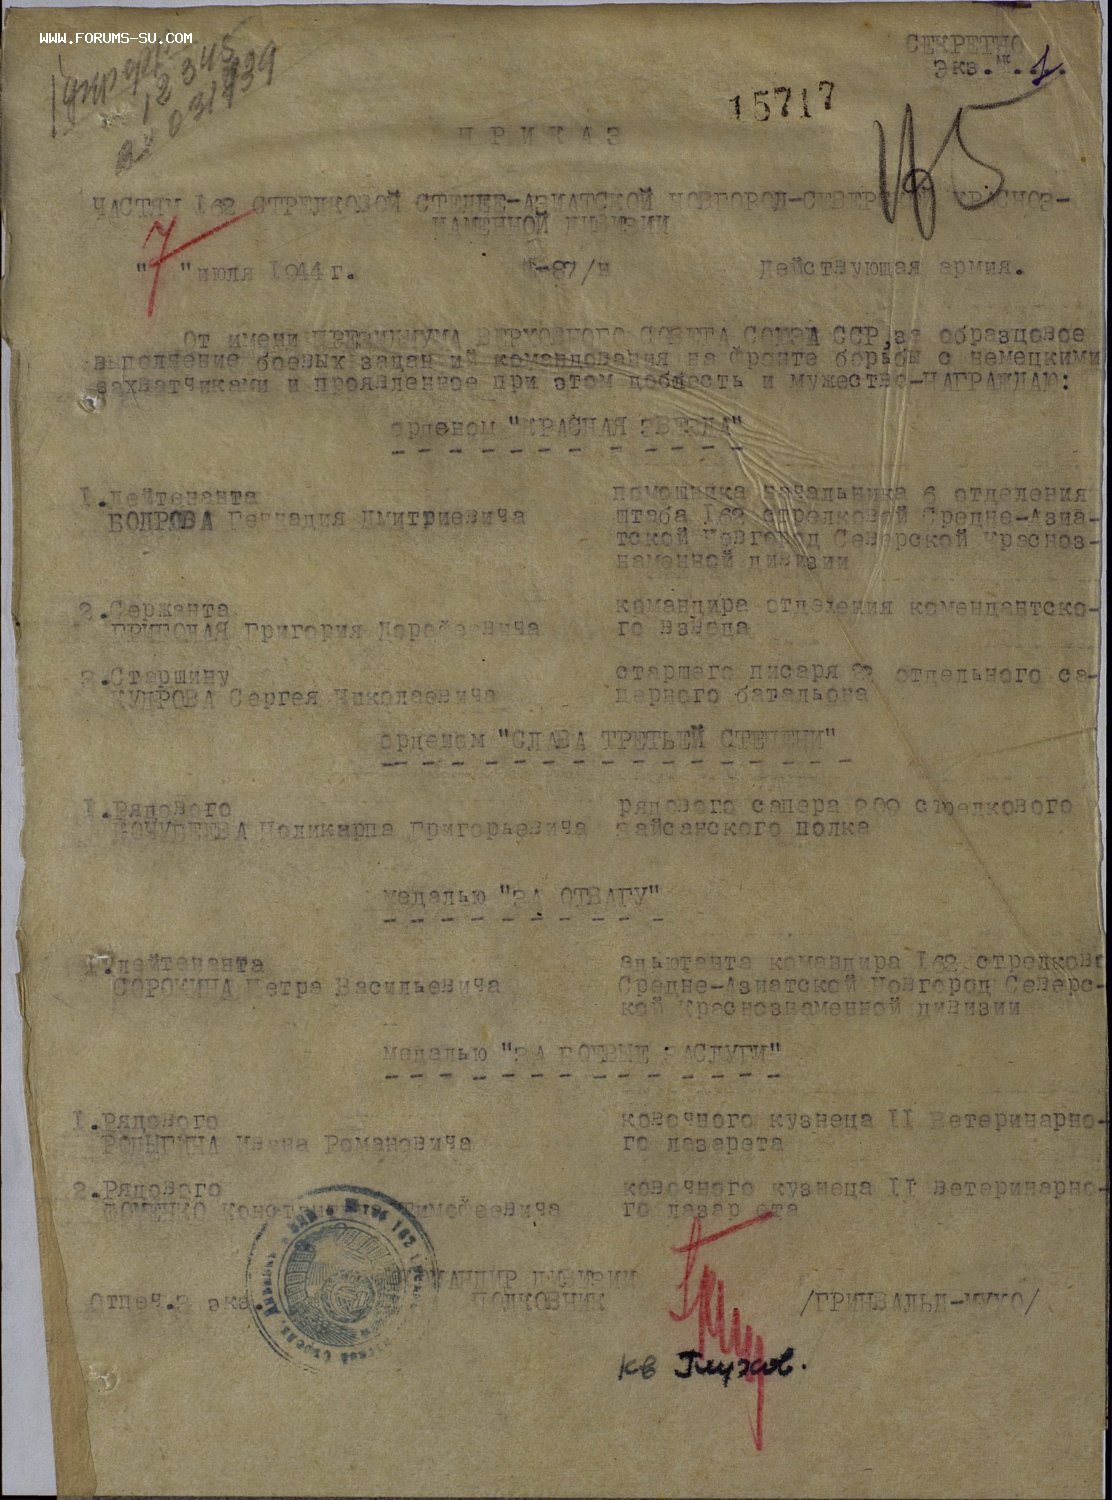 WWW.FORUMS-SU.COM
12345
031939
СЕКРЕТНО
Экз.№.1.
15717
ПРИКАЗ
ЧАСТЯМ 162 СТРЕЛКОВОЙ СРЕДНЕ-АЗИАТСКОЙ НОВГОРОД-СЕВЕР КРАСНОЗ-
НАМЕННОЙ ДИВИЗИИ
"7" июля 1944 г.
№-87/н
Действующая армия.
От имени ПРЕЗИДИУМА ВЕРХОВНОГО СОВЕТА СОЮЗА ССР, за образцовое
выполнение боевых задан ий командования на фронте борьбы с немецкими
захватчиками и проявленное при этом доблесть и мужество-НАГРАЖДАЮ:
орденом "КРАСНАЯ ЗВЕЗДА"
1. Лейтенанта
БОДРОВА Геннадия Дмитриевича
помощника начальника 6 отделения
штаба 162 стрелковой Средне-Азиа-
тской Новгород Северской Красноз-
наменной дивизии
2. Сержанта
Григория Дорофеевича
командира отделения комендантско-
го взвода
3. Старшину
КУДРОВА Сергея Николаевича
старшего писаря отдельного са-
перного батальона
орденом "СЛАВА ТРЕТЬЕЙ СТЕПЕНИ"
1. Рядового
Поликарпа Григорьевича
рядового сапера 209 стрелкового
Зайсанского полка
медалью "ЗА ОТВАГУ"
1. Лейтенанта
СОРОКИНА Петра Васильевича
адьютанта командира 162 стрелково
Средне-Азиатской Новгород Северс-
кой Краснознаменной дивизии
медалью "ЗА БОЕВЫЕ ЗАСЛУГИ"
1. Рядового
РОДЫГИНА Ивана Романовича
ковочного кузнеца II Ветеринарно-
го лазарета
2. Рядового
ФОМЕНКО Тимофеевича
ковочного кузнеца II ветеринарно-
го лазар ета
КОМАНДИР ДИВИЗИИ
ПОЛКОВНИК
/ГРИНВАЛЬД-МУХО/
Отпеч.3 экз.
кв Глухов.